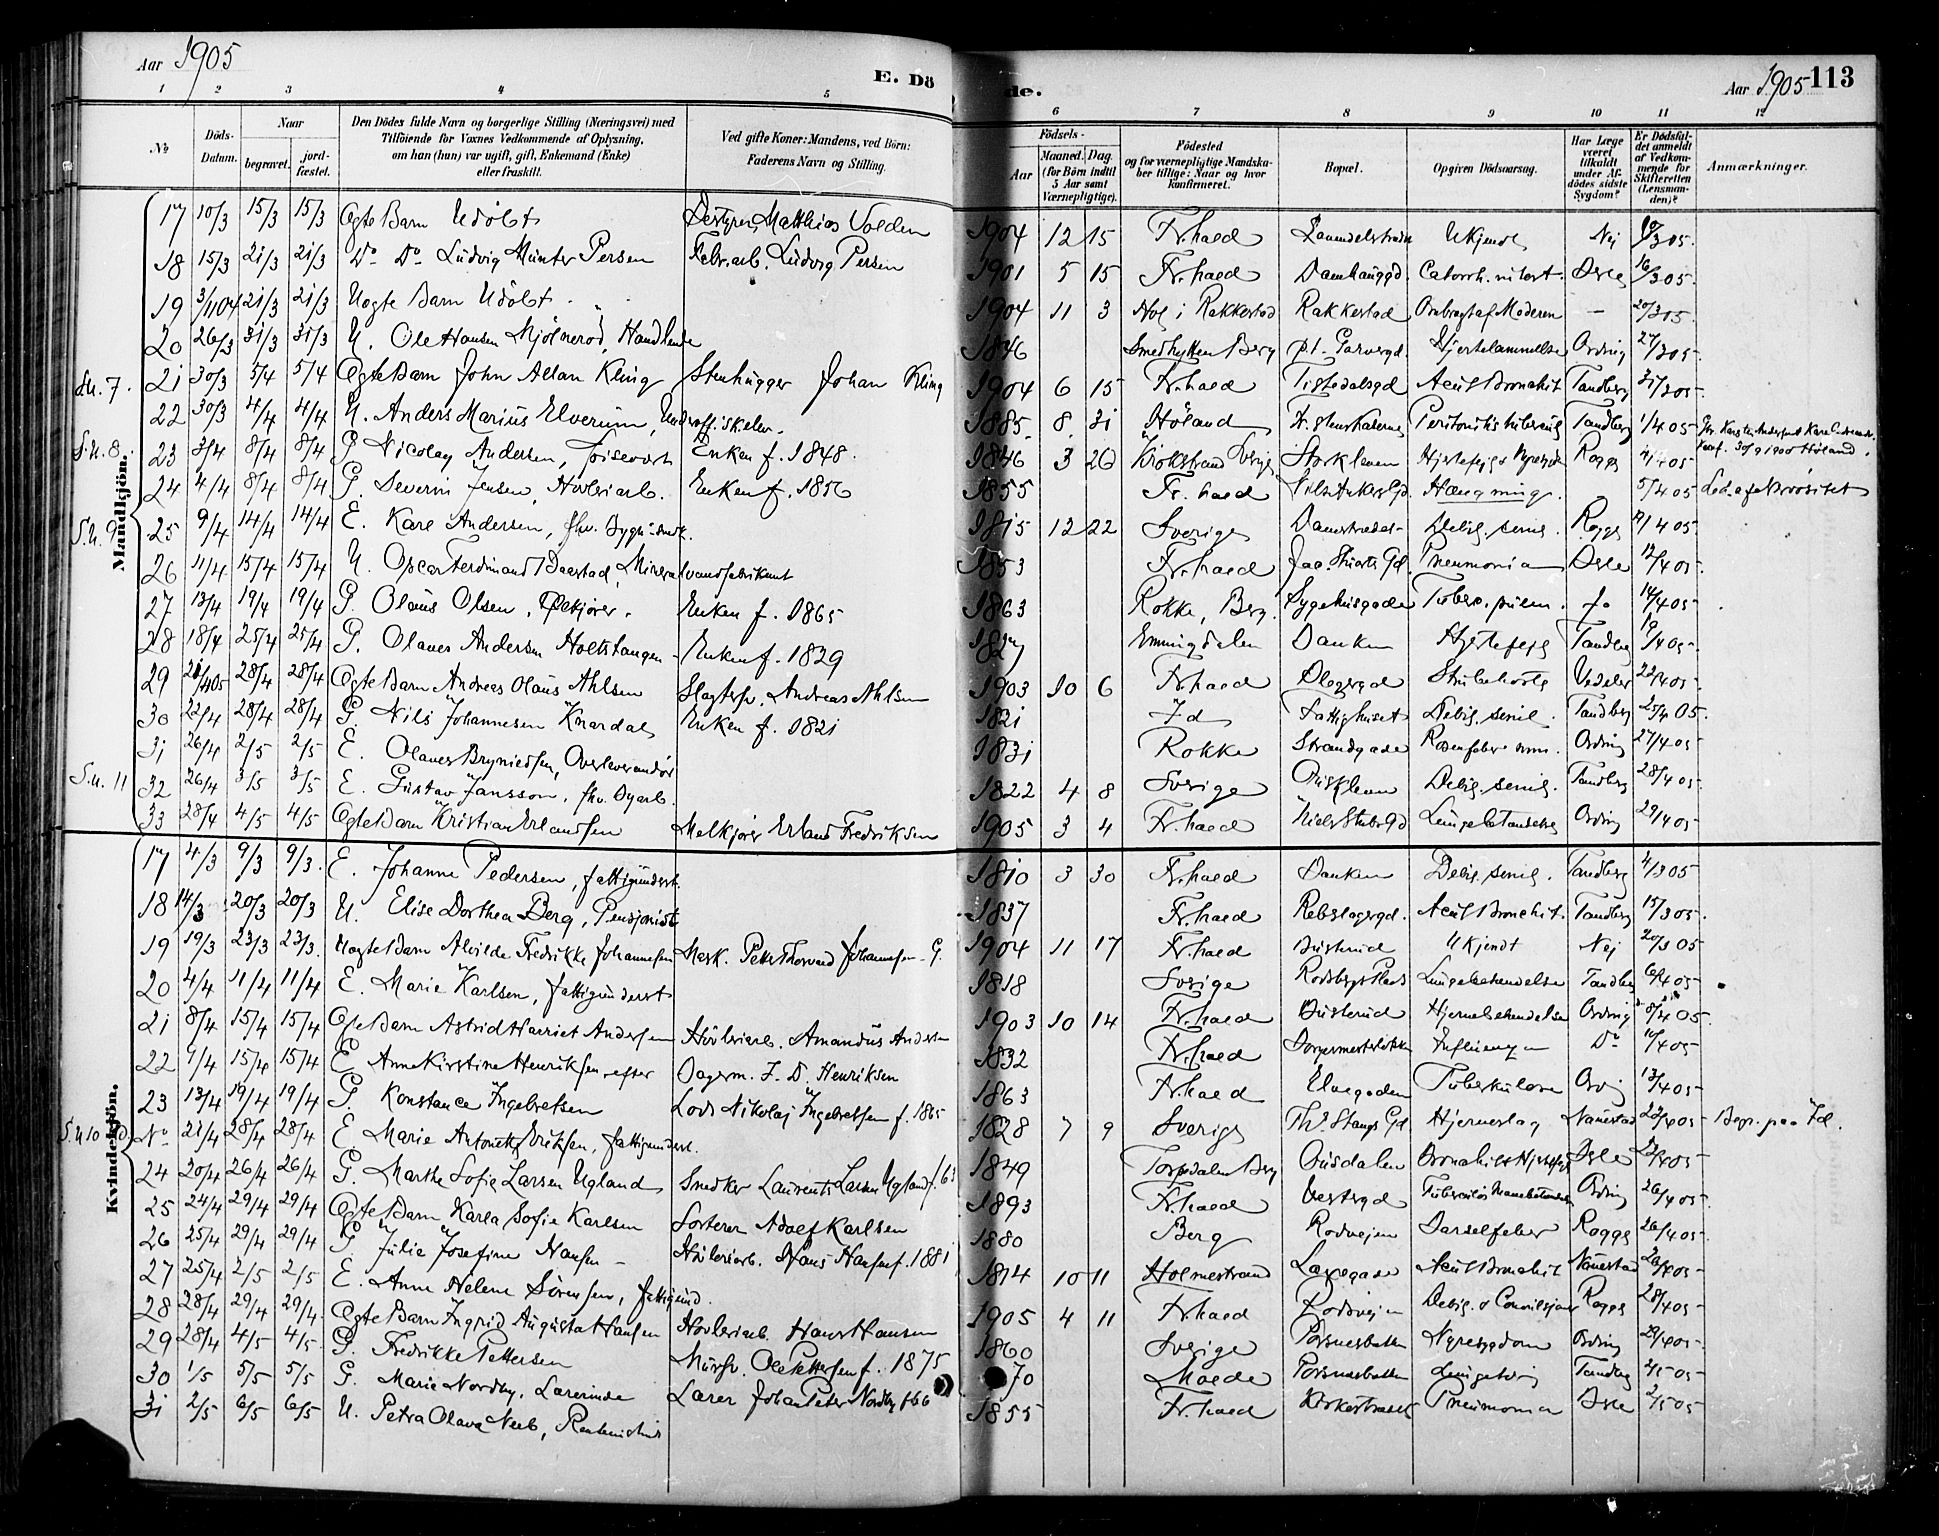 Aar 1905
E. Dö
de.
Aar 1905 113
1 2 3 4 5 6 7 8 9 10 11 12
No
Döds-Datum.
Naar
begravet.
jord-fæstet.
Den Dödes fulde Navn og borgerlige Stilling (Næringsvei) med
Tilföiende for Voxnes Vedkommende af Oplysning,
om han (hun) var ugift, gift, Enkemand (Enke)
eller fraskilt.
Ved gifte Koner: Mandens, ved Börn:
Faderens Navn og Stilling.
Födsels-
Aar
Maaned. Dag.
(for Börn indtil
5 Aar samt
Værnepligtige).
Födested
og for værnepligtige Mandska-
ber tillige: Naar og hvor
konfirmeret.
Bopæl.
Opgiven Dödsaarsag.
Har Læge
været
tilkaldt
under Af-
dödes sidste
Sygdom?
Er Dödsfal-
det anmeldt
af Vedkom-
mende for
Skifteretten
(Lensman-
den)?
Anmærkninger.
Mandkjön.
17 10/3 15/3 15/3 Ægte Barn Udöbt Matthias Volden 1904 12 15 Fr.hald Ukjendt Nej
18 15/3 21/3 21/3 Do Do Ludvig Münter Persen Fabr.arb. Ludvig Persen 1901 5 15 Fr.hald 16/3 05
19 3/11 04 21/3 21/3 Uægte Barn Udöbt 1904 11 3 Rakkestad Rakkestad Ombragt af Moderen – 20/3 15
20 26/3 31/3 31/3 U. Ole Hansen Mjölneröd, Handlende 1846 Berg Hjertelammelse Ording 27/3 05
S.u. 7. 21 30/3 5/4 5/4 Ægte Barn John Allan Kling Stenhugger Johan Kling 1904 6 15 Fr.hald Tistedalsgd Acut Bronchit Tandberg 31/3 05
22 30/3 4/4 4/4 U. Anders Marius Elverum, Underoff.s.elev. 1885 8 31 Höland Tandberg 1/4 05
S.u. 8. 23 3/4 8/4 8/4 G. Nicolay Andersen Enken f. 1848. 1846 3 26 Sverige Storkleven Rogge 4/4 05
24 4/4 8/4 8/4 G. Severin Jensen, Hövleriarb. Enken f. 1856 1855 Fr.hald Hængning 5/4 05
S.u. 9 25 9/4 14/4 14/4 E. Karl Andersen, fhv. 1815 12 22 Sverige Damstrædet Debil. senil. Rogge
26 11/4 15/4 15/4 U. Oscar Ferdinand Baastad, Mineralvandfabrikant 1853 Fr.hald Pneumonia 12/4 05
27 13/4 19/4 19/4 G. Olaus Olsen Enken f. 1865 1863 Rokke, Berg Sygehusgaden Tuberc. pulm. 14/4 05
28 18/4 25/4 25/4 G. Olaves Andersen Holtstangen Enken f. 1829 1827 Enningdalen Banken Hjertefejl Tandberg 19/4 05
29 28/4 28/4 Ægte Barn Andreas Olaus Ahlsen Slagtersv. Andreas Ahlsen 1903 10 6 Fr.hald Strubehoste 22/4 05
30 22/4 28/4 28/4 G. Nils Johannesen Knardal Enken f. 1821 1821 Id Fattighuset Debil. senil. Tandberg 25/4 05
31 26/4 2/5 2/5 E. Olaves Bryniedsen 1831 Rokke Strandgade Ording 27/4 05
S.u. 11 32 26/4 3/5 3/5 E. Gustav Jansson, fhv. 1822 4 8 Sverige Debil. senil. Tandberg 28/4 05
33 28/4 4/5 4/5 Ægte Barn Kristian Erlandsen Melkjörer Erland Fredriksen 1905 3 4 Fr.hald Niels Stubs Gd Lungebetændelse Ording 29/4 05
Kvindekjön.
17 4/3 9/3 9/3 E. Johanne Pedersen, fattigunderst. 1810 3 30 Fr.hald Banken Debil. senil. Tandberg 4/3 05
18 14/3 20/3 20/3 U. Elise Dorthea Berg, Pensjonist 1837 Fr.hald Rebslagergd. Acut Bronchit. Tandberg 15/3 05
19 19/3 23/3 23/3 Uægte Barn Alvilde Fredrikke Johannesen Mask. Petter Thorvald Johannesen G. 1904 11 17 Fr.hald Busterud Ukjendt Nej 20/3 05
20 4/4 11/4 11/4 E. Marie Karlsen, fattigunderst 1818 Sverige Rödsbergs Plads Lungebetændelse Tandberg 6/4 05
21 8/4 15/4 15/4 Ægte Barn Astrid Harriet Andersen Hövleriarb. Amandus Andersen 1903 10 14 Fr.hald Busterud Hjernebetændelse Ording 8/4 05
22 9/4 15/4 15/4 E. Anne Kirstine Henriksen, efter Bagerm. J. D. Henriksen 1832 Fr.hald Borgermesterlökken Influenza Do 10/4 05
23 13/4 19/4 19/4 G. Konstance Ingebretsen Lods Nikolaj Ingebretsen f. 1865 1863 Fr.hald Elvegaden Tuberkulose 13/4 05
S.u 10 No 21/4 28/4 28/4 E. Marie Antonette Eriksen, fattigunderst. 1828 7 9 Sverige Ths Stangs Gd Hjerneslag Nauestad 22/4 05 Begr. paa Id.
24 20/4 26/4 26/4 G. Marthe Sofie Larsen Ugland Snedker Laurents Larsen Ugland f. 63 1849 Torpedalen Berg 22/4 05
25 24/4 29/4 29/4 Ægte Barn Karla Sofie Karlsen Sorterer Adolf Karlsen 1893 Fr.hald Vestergd Ording 26/4 05
26 25/4 29/4 29/4 G. Julie Josefine Hansen Hövleriarb. Hans Hansen f. 1881 1880 Berg Rödsvejen Barselfeber Rogge 26/4 05
27 25/4 2/5 2/5 E. Anne Helene Sörensen, fattigund. 1814 10 11 Holmestrand Acut Bronchit Nauestad
28 28/4 29/4 29/4 Ægte Barn Ingrid Augusta Hansen Hövleriarb. Hans Hansen 1905 4 11 Fr.hald Rödsvejen Debil. & Convulsjoner Rogge 28/4 05
29 28/4 4/5 4/5 G. Fredrikke Pettersen Mursv. Ole Pettersen f. 1875 1860 Sverige Porsnesbakken Nyresygdom Ording 29/4 05
30 1/5 5/5 5/5 G. Marie Nordby, Lærerinde Lærer Johan Peter Nordby f 66 70 Molde Porsnesbakken Tandberg 2/5 05
31 2/5 6/5 6/5 U. Petra Olava Neeb, Rentenistinde 1855 Fr.hald Kirkestrædet Pneumonia 2/5 05